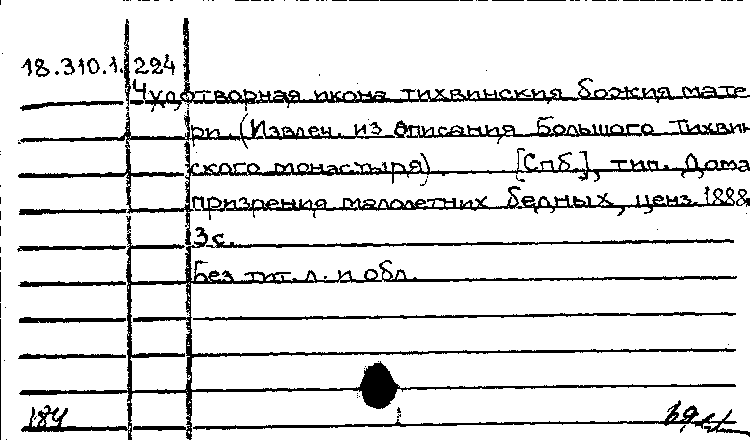 18.310.1.224
Чудотворная икона тихвинския божия мате
ри. (Извлеч. из описания Большого Тихвин
ского монастыря). [Спб.], тип. Дома
призрения малолетних бедных, ценз. 1888.
3с.
Без тит. л. и обл.
184